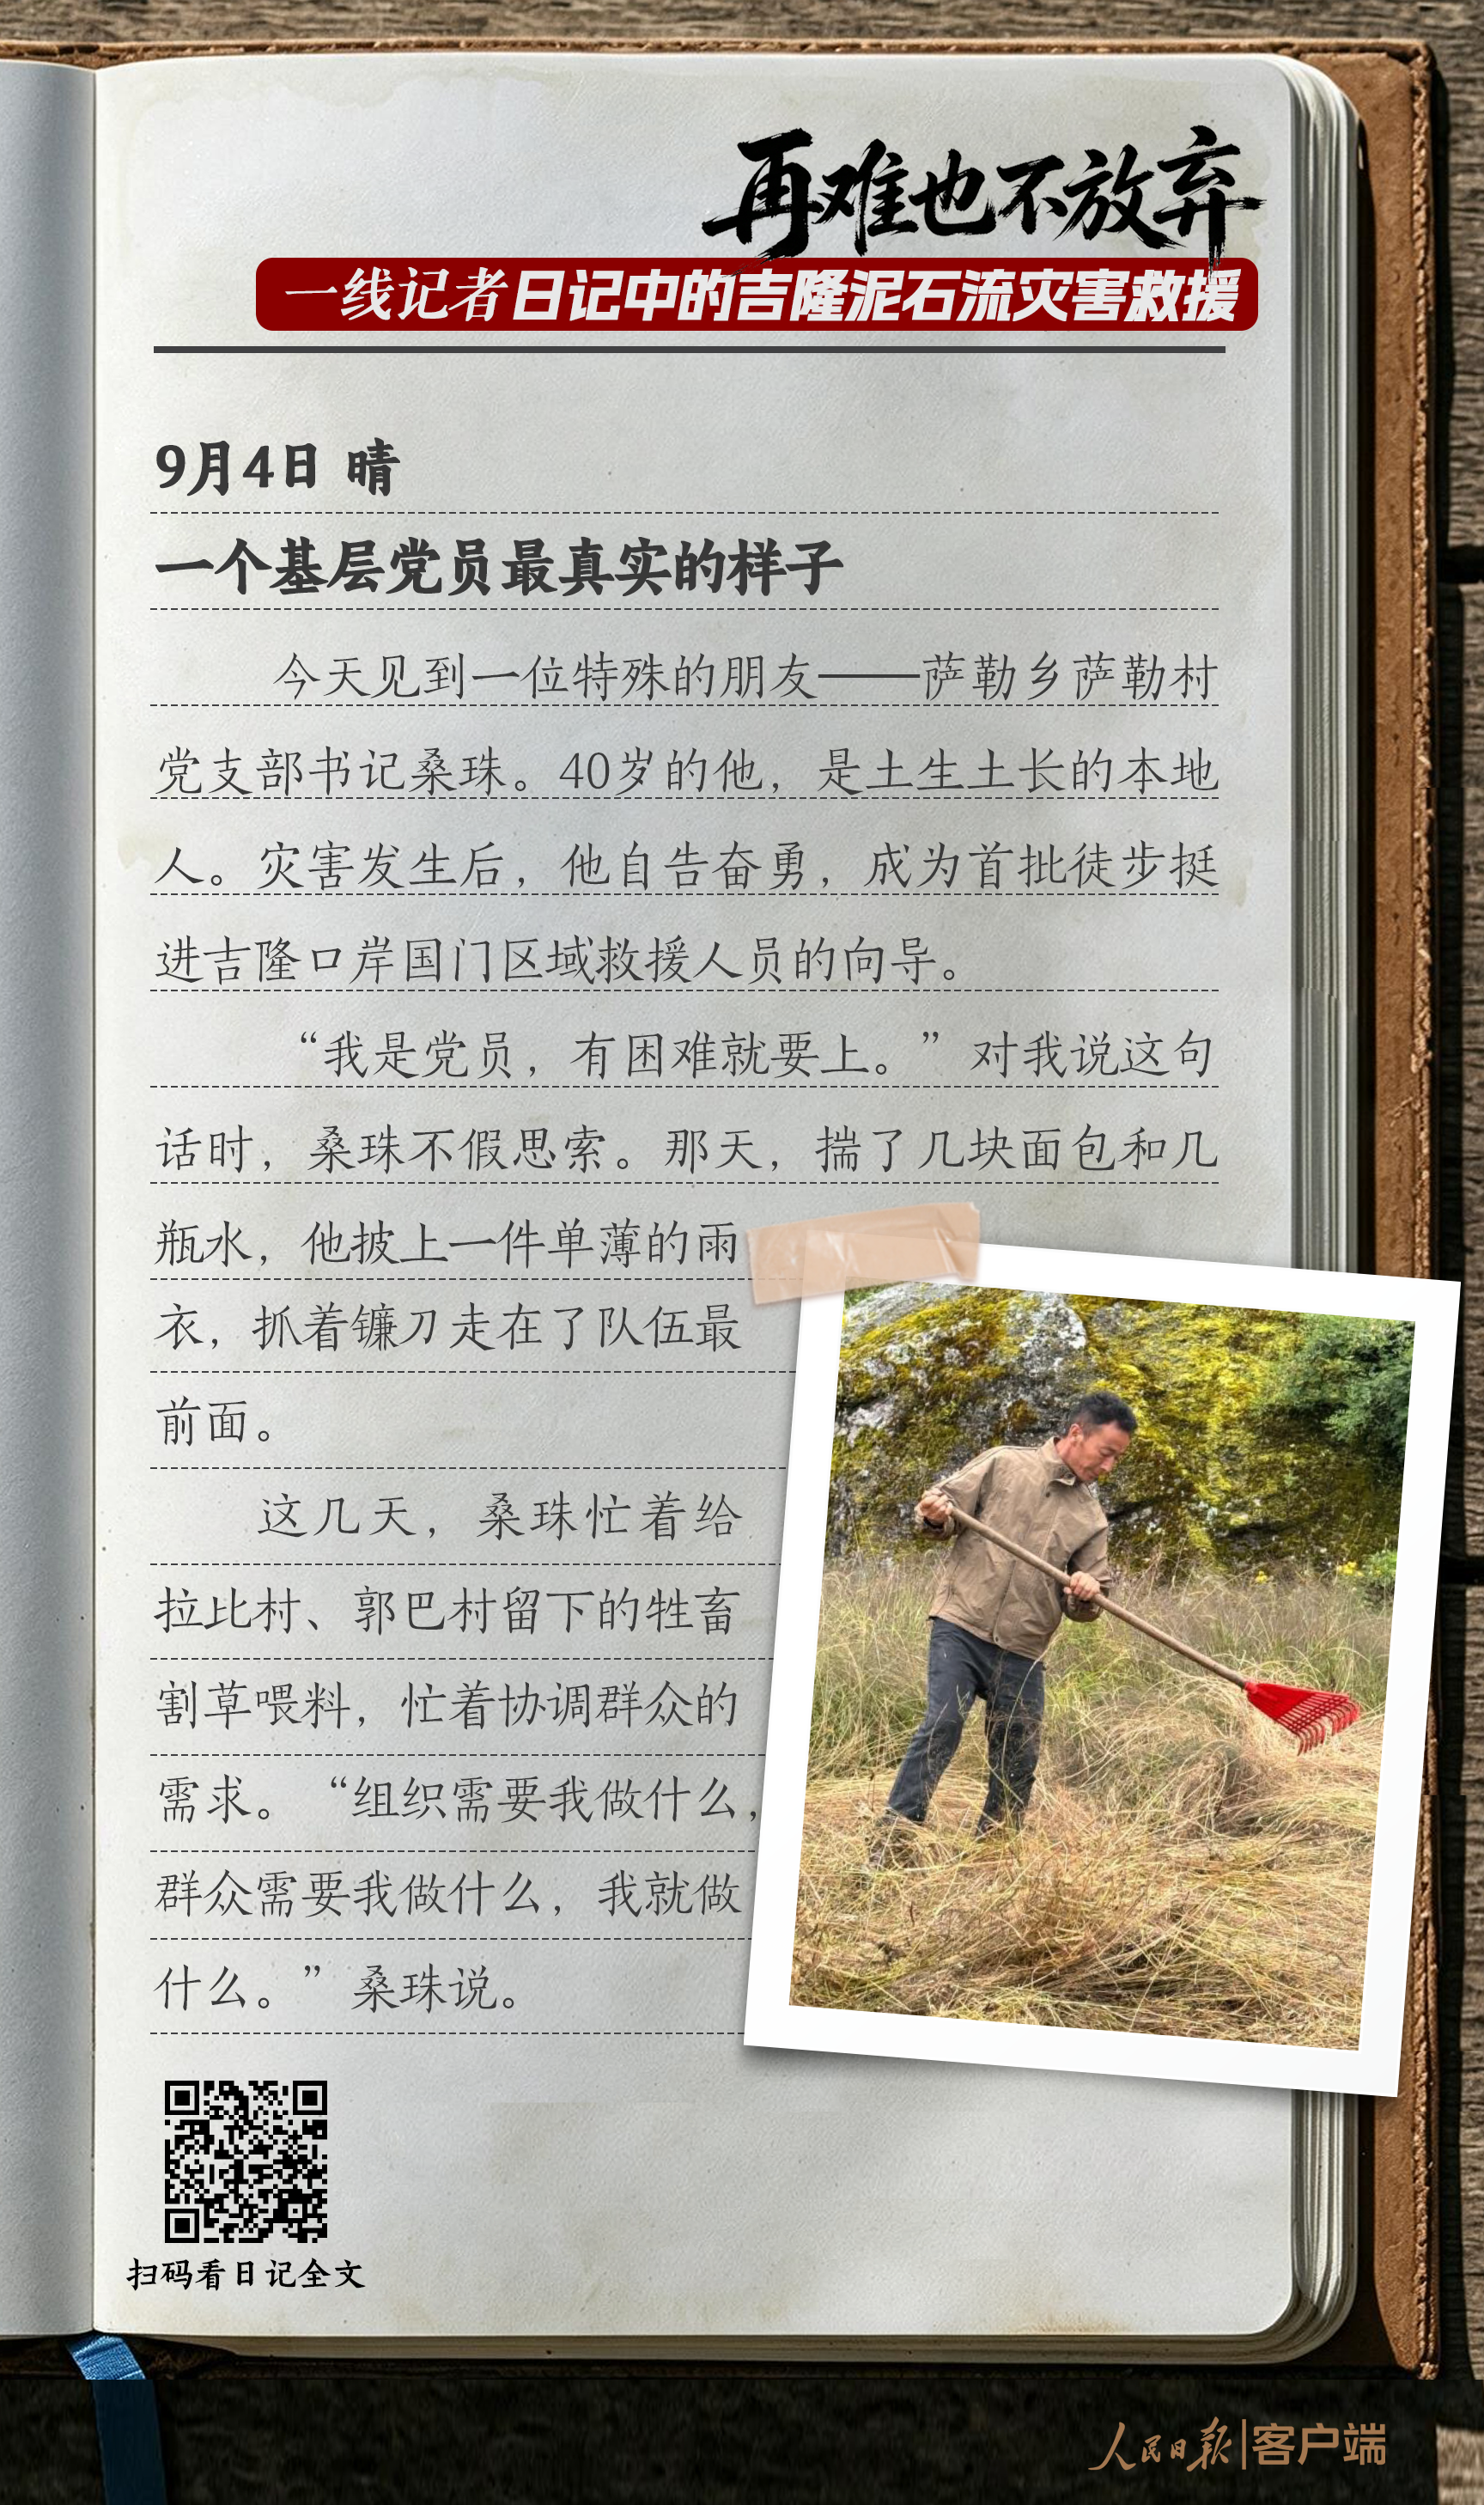 再难也不放弃
一线记者日记中的吉隆泥石流灾害救援
9月4日 晴
一个基层党员最真实的样子
今天见到一位特殊的朋友——萨勒乡萨勒村
党支部书记桑珠。40岁的他，是土生土长的本地
人。灾害发生后，他自告奋勇，成为首批徒步挺
进吉隆口岸国门区域救援人员的向导。
“我是党员，有困难就要上。”对我说这句
话时，桑珠不假思索。那天，揣了几块面包和几
瓶水，他披上一件单薄的雨
衣，抓着镰刀走在了队伍最
前面。
这几天，桑珠忙着给
拉比村、郭巴村留下的牲畜
割草喂料，忙着协调群众的
需求。“组织需要我做什么，
群众需要我做什么，我就做
什么。”桑珠说。
扫码看日记全文
人民日报|客户端